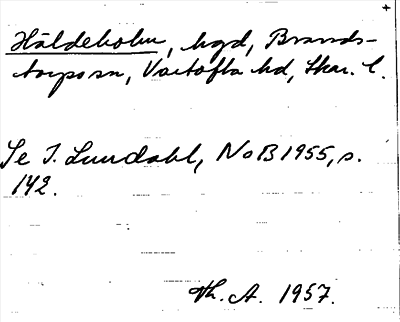 Häldeholm, hgd, Brands-
torps sn, Vartofta hd, Skar. l.
Se I. Lundahl, NoB 1955, s.
142.
Th. A. 1957.